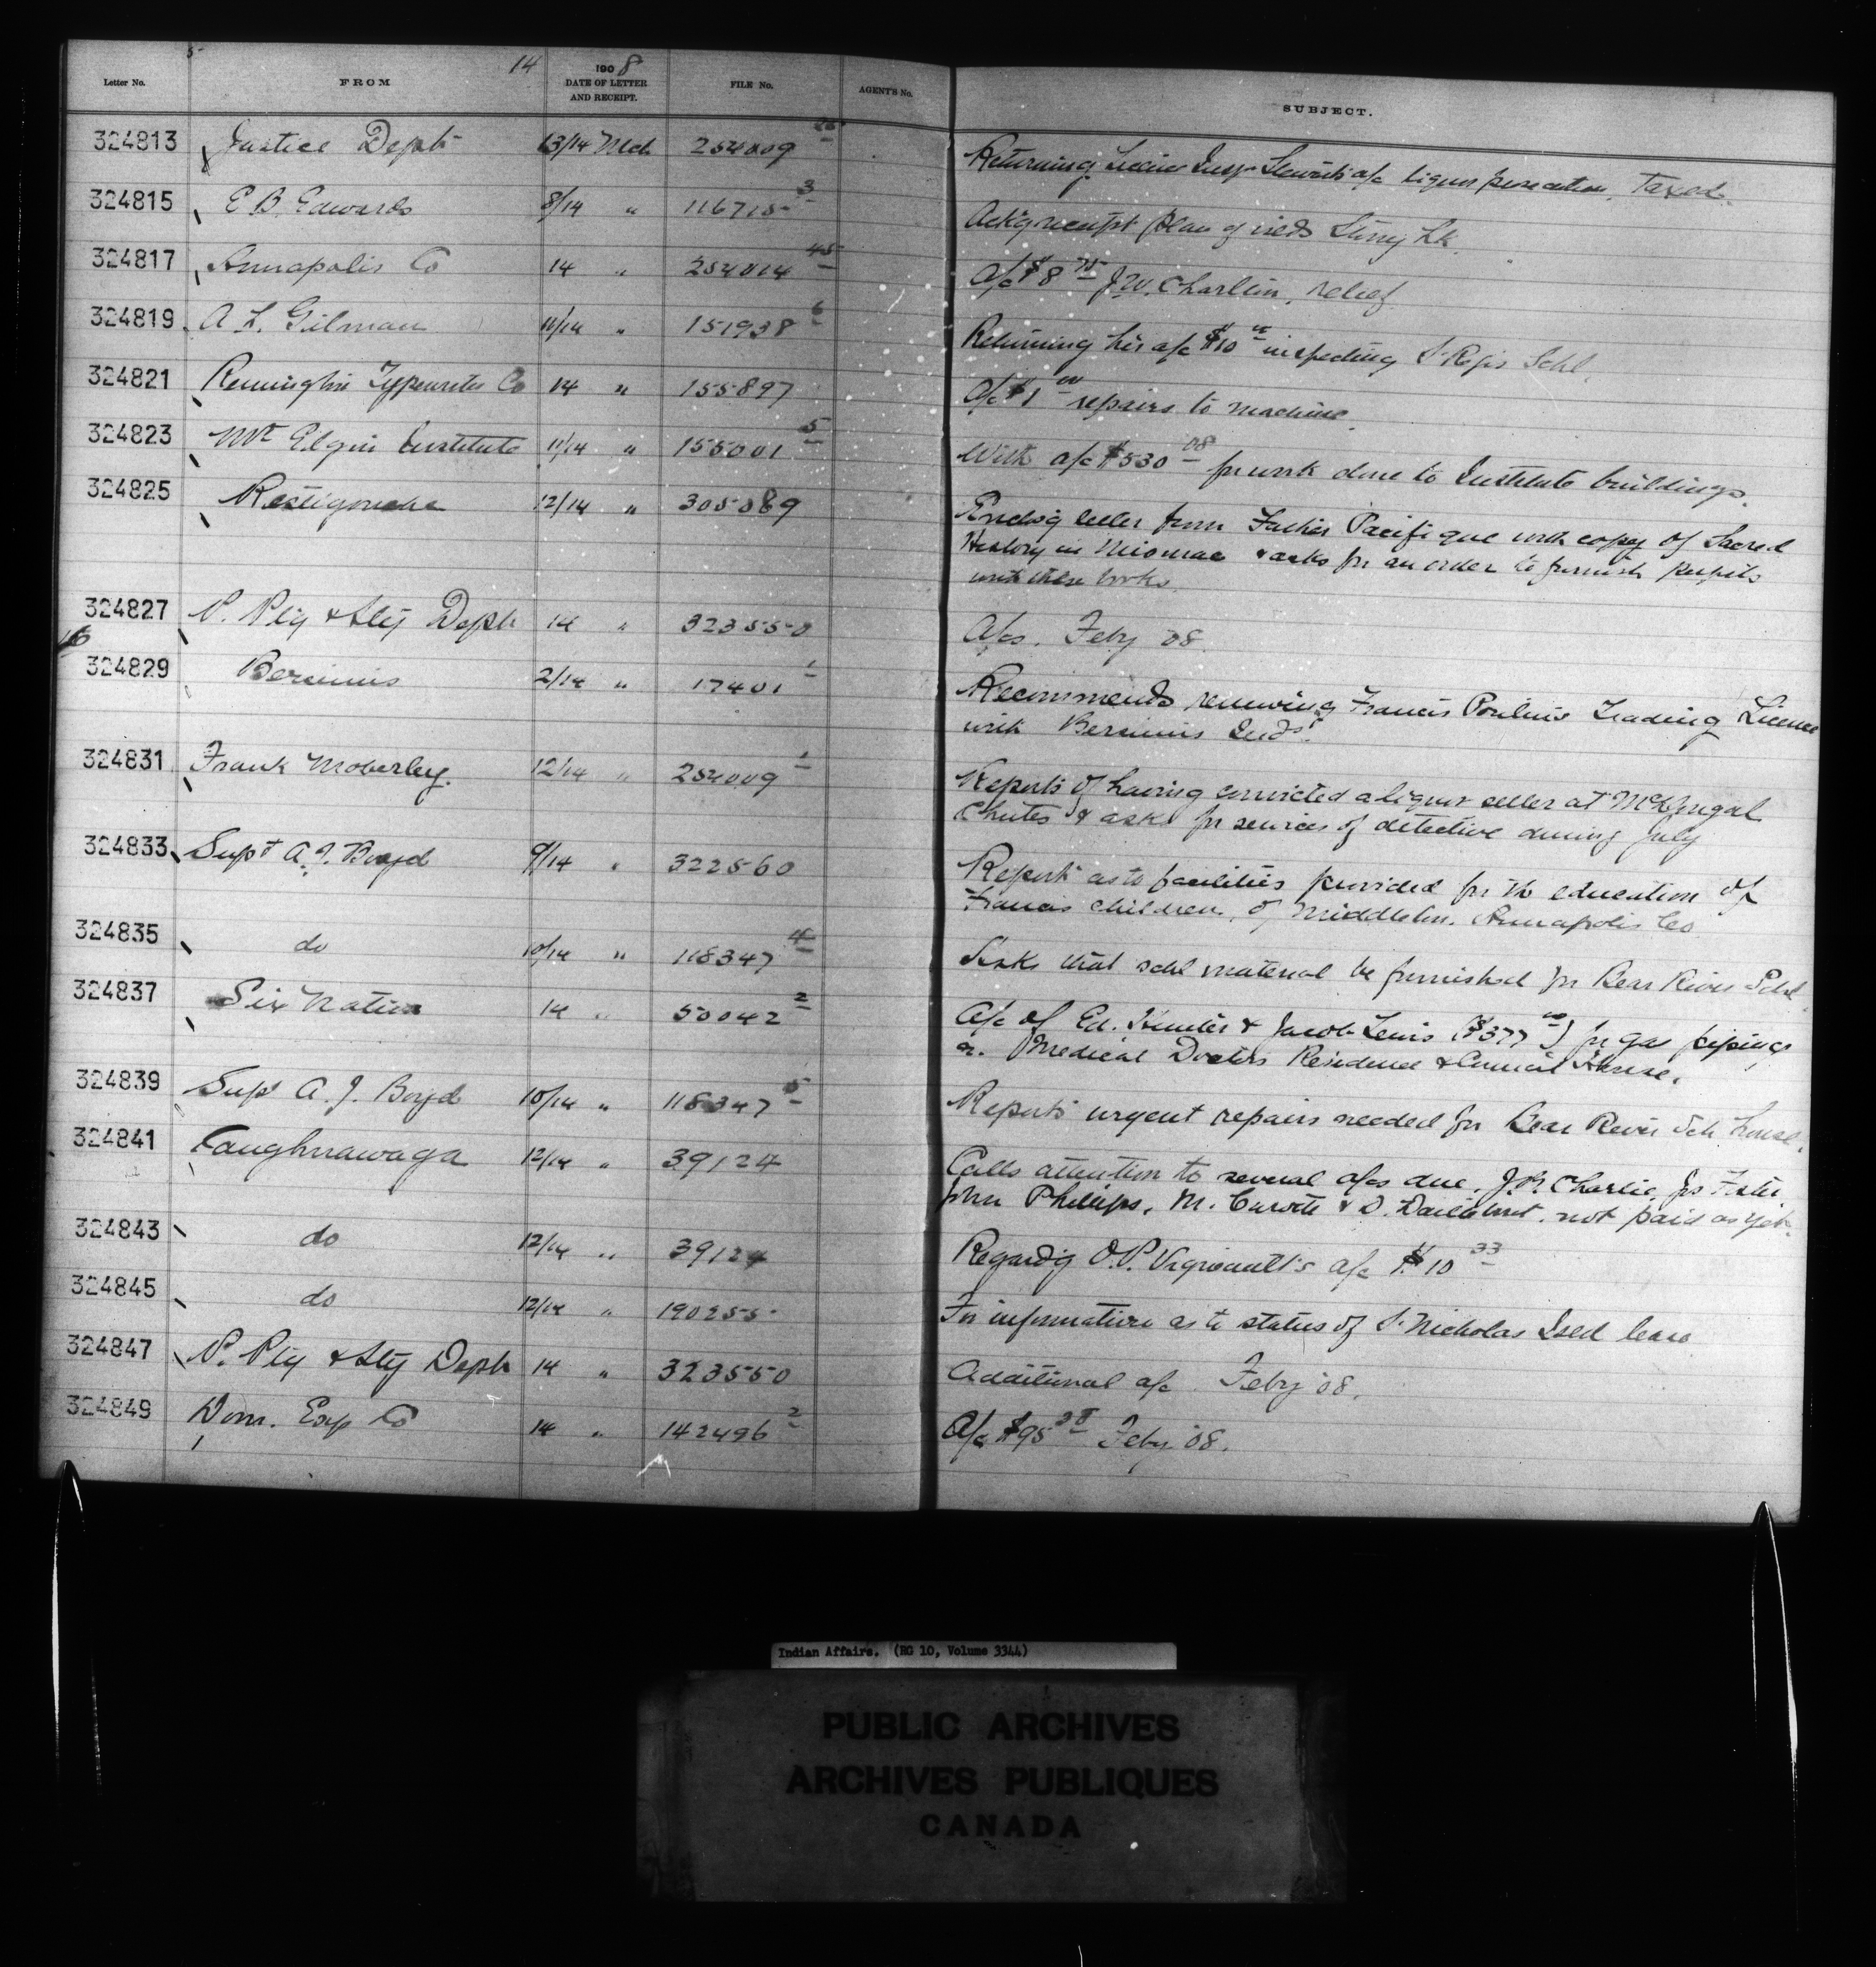 5
14
Letter No. FROM 1908 DATE OF LETTER AND RECEIPT. FILE No. AGENT'S No. SUBJECT.
324813 Justice Dept 13/14 Mch 254009 Returning Insp a/c liquor Taxed.
324815 E B. Edwards 8/14 " 116715 3 Ack'g receipt plan of islds Stony Lk.
324817 Annapolis Co 14 " 254014 45 A/c $8 75 J.W. Charlton, relief
324819 A. L. Gilman 11/14 " 151938 6 Returning his a/c $10 00 inspecting St Regis Schl.
324821 Remington Typewriter Co 14 " 155897 A/c $1 00 repairs to machine.
324823 Mt Elgin Institute 11/14 " 155001 5 With a/c $530 08 for work done to Institute buildings.
324825 Restigouche 12/14 " 305089 Enclos'g letter from Father Pacifique with copy of Sacred
History in Micmac & asks for an order to furnish pupils
with these books.
324827 N. Ptg & Sty Dept 14 " 323550 A/cs. Feby '08.
16
324829 Bersimis 2/14 " 17401 1 Recommends renewing Francis Poulin's Trading Licence
with Bersimis Inds.
324831 Frank Moberley. 12/14 " 254009 1 Reports of having convicted a liquor seller at McDougal
Chutes & asks for services of detective during July
324833 Supt A. J. Boyd 9/14 " 322560 Report as to facilities provided for the education of
Francis children, of Middleton, Annapolis Co
324835 do 10/14 " 118347 4 Asks that schl material be furnished for Bear River Schl.
324837 Six Nation 14 " 50042 2 A/c of Ed. Hunter & Jacob Lewis ($377 00) for gas piping
Medical Doctors Residence & Council House.
324839 Supt A. J. Boyd 10/14 " 118347 5 Reports urgent repairs needed for Bear River Sch. House.
324841 Caughnawaga 12/14 " 39124 Calls attention to several a/cs due, J.B. Charlie, Jos Foster
John Phillips, M. & D. not paid as yet.
324843 do 12/14 " 39124 Regard'g O.P. Vigneault's a/c $10 33
324845 do 12/14 " 190255 For information as to status of St Nicholas Isld lease
324847 N. Ptg & Sty Dept 14 " 323550 Additional a/c Feby '08.
324849 Dom. Exp Co 14 " 142496 2 A/c $95 Feby '08.
Indian Affairs. (RG 10, Volume 3344)
PUBLIC ARCHIVES
ARCHIVES PUBLIQUES
CANADA